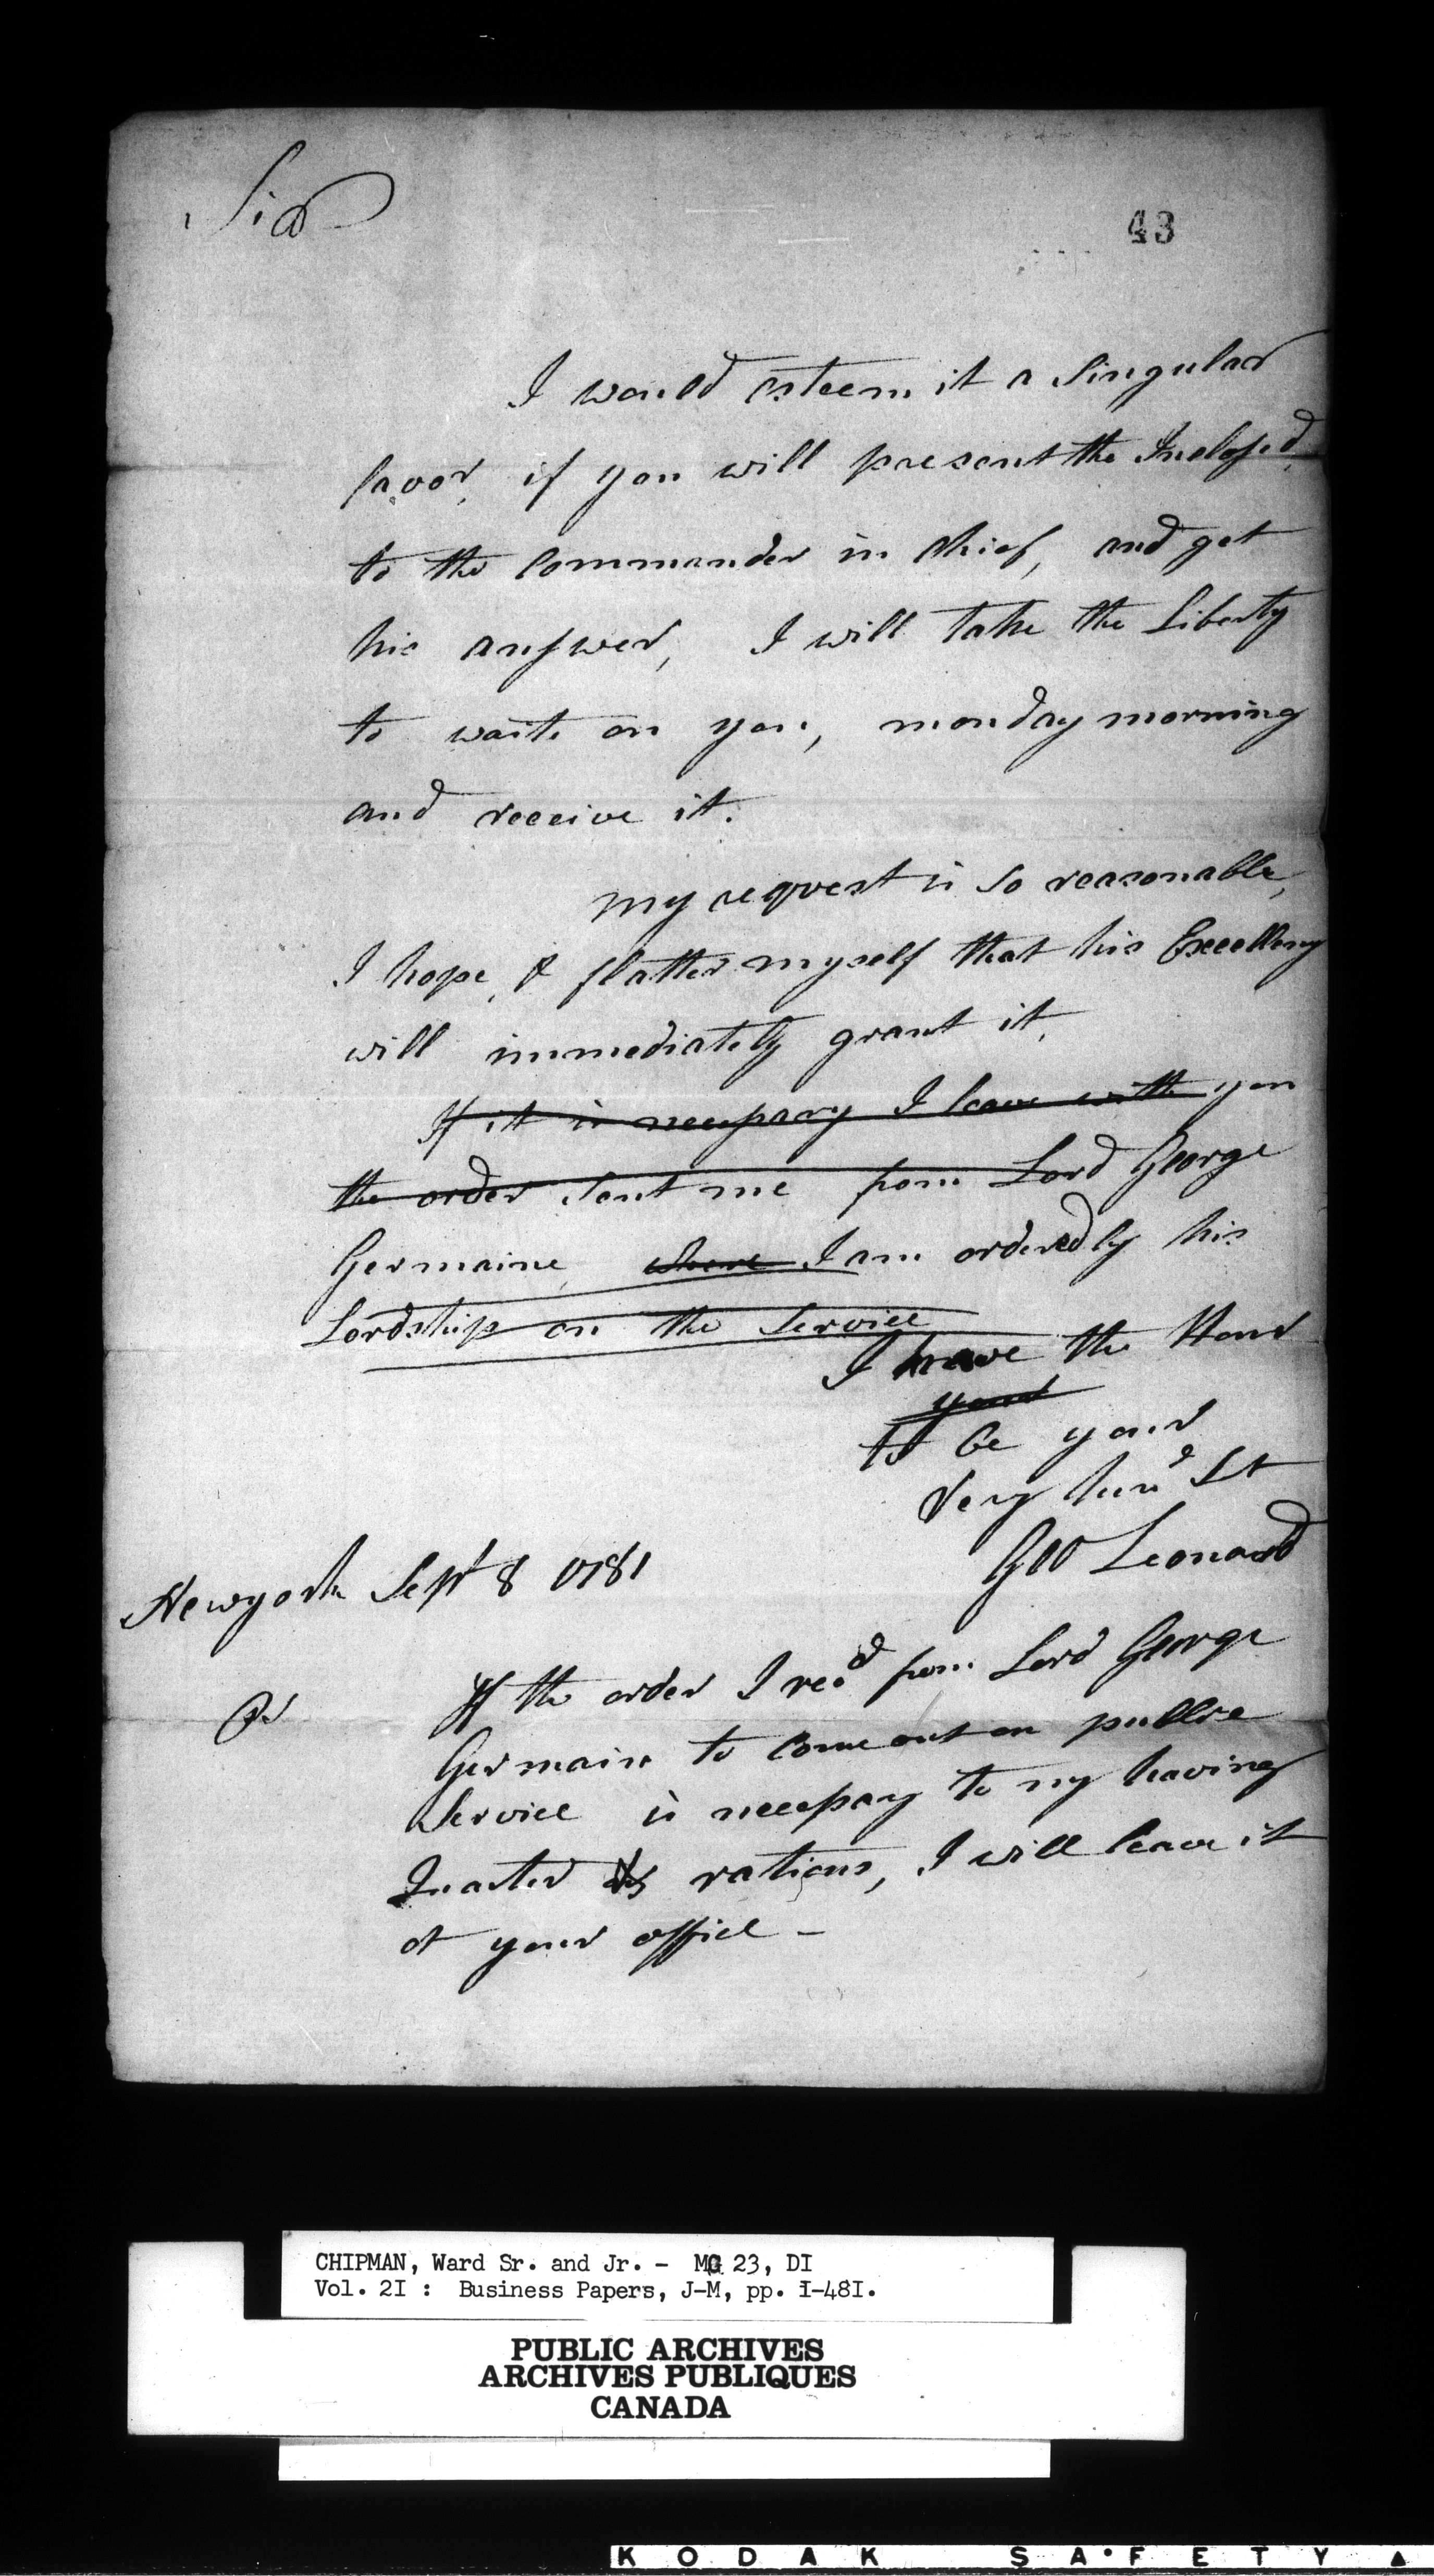 Sir
43
I would esteem it a Singular
favor, if you will present the Inclosed
to the Commander in Chief, and get
his answer, I will take the Liberty
to waite on you, monday morning
and receive it.
my request is so reasonable,
I hope, & flatter myself that his Excellency
will immediately grant it.
If it is necessary I leave with you
the order sent me from Lord George
Germaine, where I am ordered by his
Lordship on the Service
I have the Honr
your
to be your
Very humd St
Geo Leonard
Newyork Sept 8 1781
Ps
If the order I recd from Lord George
Germain to come out on public
Service is necessary to my having
Quarter & rations, I will leave it
at your office -
CHIPMAN, Ward Sr. and Jr. - MG 23, DI
Vol. 2I : Business Papers, J-M, pp. I-48I.
PUBLIC ARCHIVES
ARCHIVES PUBLIQUES
CANADA
KODAK SA•FETY ▲